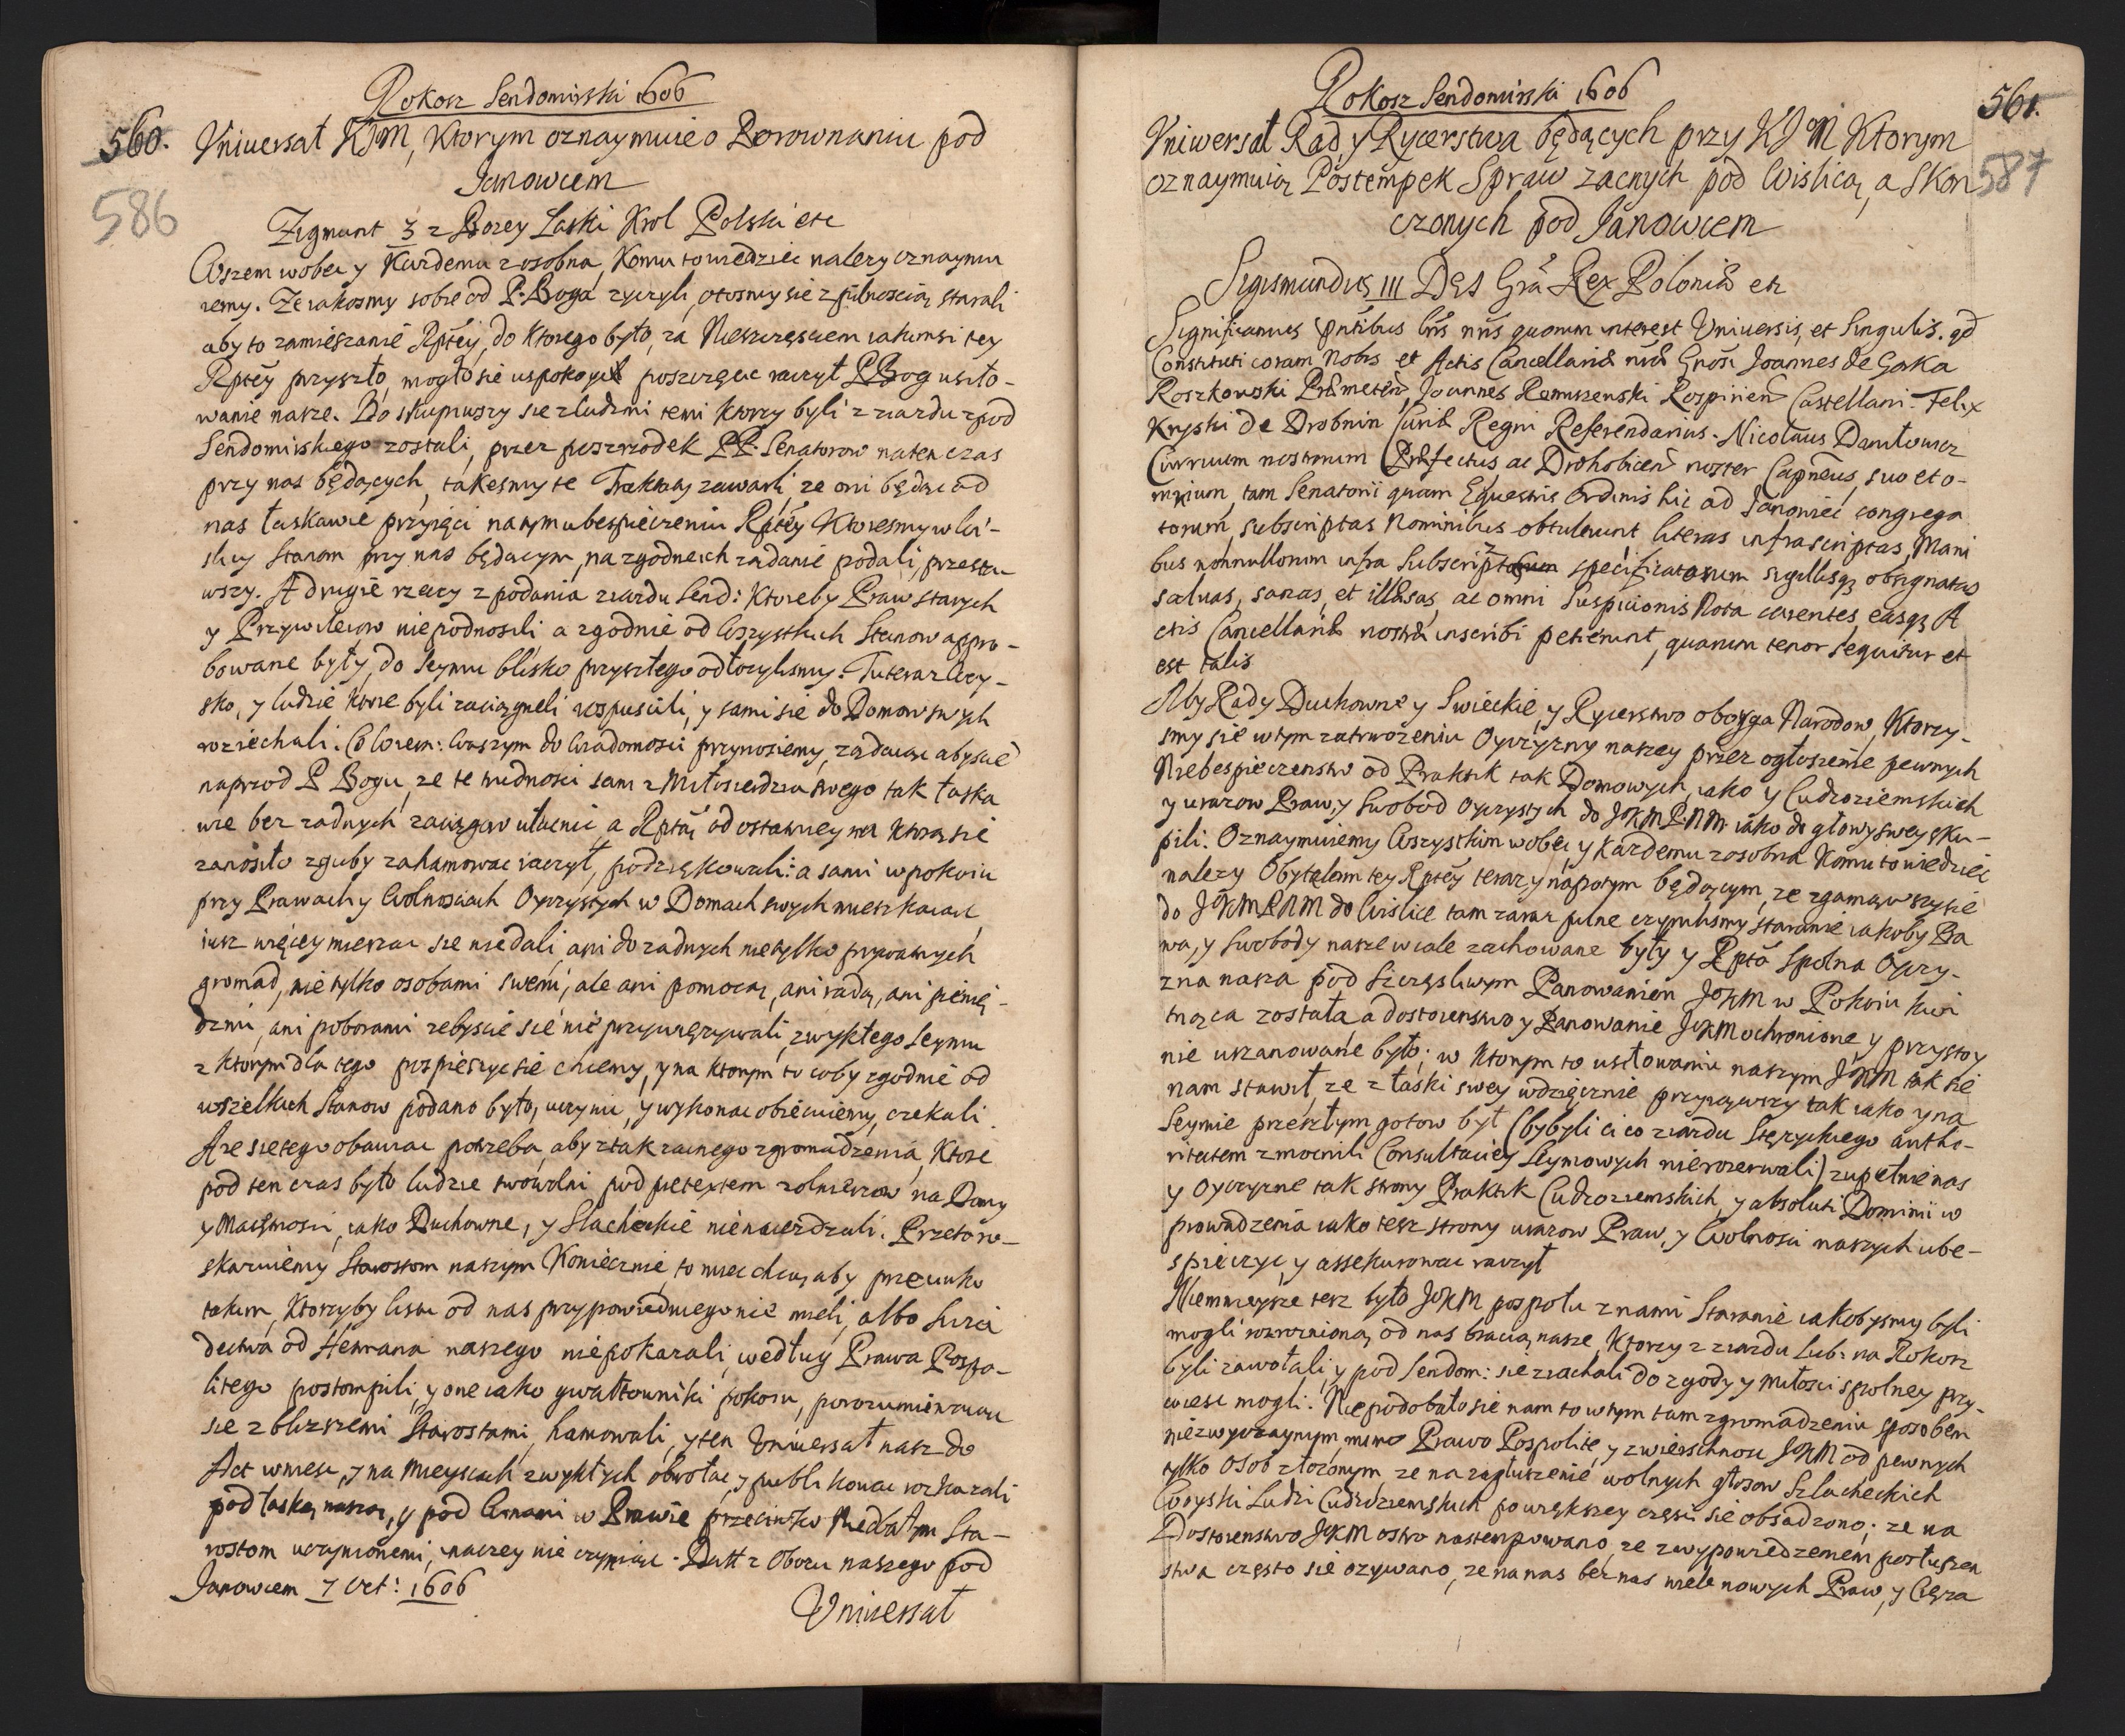 Rokosz Sendomirski 1606
560.
Vniuersał KJM, Ktorym oznaymuie o Porownaniu pod
Janowcem
586
Zigmunt 3 z Bozey Laski Krol Polski etc
Wszem wobec y Kazdemu zosobna, Komu to wiedziec nalezy oznaymu
iemy. Ze iakosmy sobie od P. Boga zyczyli, otosmy sie z pilnoscią starali
aby to zamieszanie Rptey, do Ktorego było, za Nieszczęsciem iakimsi tey
Rptey przyszło, mogło sie uspokoyc poszczęscic raczył P Bog usiło-
wanie nasze. Bo skupiwszy sie z ludzmi temi Ktorzy byli z ziazdu zpod
Sendomirskiego zostali, przez poszrzodek PP. Senatorow na ten czas
przy nas będących, takesmy te Traktaty zawarli, ze oni będąc od
nas łaskawie przyięci na tym ubespieczeniu Rptey Ktoresmy w Wi-
slicy Stanom przy nas będącym, na zgodne ich ządanie podali, przesta-
wszy. A drugie rzeczy z podania ziazdu Send: Ktoreby Praw starych
y Przywileiow nie podnosili a zgodnie od Wszystkich Stanow appro-
bowane były, do Seymu blisko przyszłego odłozylismy. Tu teraz Woy-
sko, y ludzie ktore byli zaciągneli rospuscili, y sami sie do Domow swych
roziechali. Co Wiern: Waszym do Wiadomosci przynosiemy, ządaiąc abyscie
naprzod P Bogu, ze te trudnosci sam z Miłosierdzia swego tak łaska
wie bez zadnych zaciągow ulacnic a Rptą od ostatniey na ktorą sie
zanosiło zguby zahamowac raczył, podziękowali: a sami w pokoiu
przy Prawach y Wolnosciach Oyczystych w Domach swych mieszkaiąc
iusz więcey mieszac sie nie dali, ani do zadnych nie tylko prywatnych
gromad, nie tylko osobami swemi, ale ani pomocą, ani radą, ani pienię-
dzmi, ani poborami zebyscie sie nie przywięzywali, zwykłego Seymu
z ktorym dla tego pospieszyc sie chcemy, y na ktorym to coby zgodnie od
wszelkich Stanow podano było, uczynic, y wykonac obiecuiemy, czekali.
A ze sie tego obawiac potrzeba, aby z tak zacnego zgromadzenia, Ktore
pod ten czas było ludzie swowolni pod pretextem zolnierzow na Domy
y Maiętnosci, iako Duchowne, y Slacheckie nie naiezdzali. Przeto ro-
skazuiemy Starostom naszym Koniecznie, to miec chcąc, aby przeciwko
takim, Ktorzyby listu od nas przypowiednego nie mieli, albo Swia
dectwa od Hetmana naszego nie pokazali, według Prawa Pospo-
litego postompili, y one iako gwałtowniki pokoiu, porozumiewaiąc
sie z blizszemi Starostami, hamowali, y ten Vniuersał nasz do
Act wniesc, y na mieyscach zwykłych obwołac, y publikowac rozkazali
pod łaską naszą, y pod Winami w Prawie przeciwko Niedbałym Sta-
rostom uczynionemi, inaczey nie czyniąc. Datt z Obozu naszego pod
Janowcem 7 Oct: 1606
Vniuersał
Rokosz Sendomirski 1606
561.
Vniwersał Rad y Rycerstwa będących przy KJM Ktorym
oznaymuią Postempek Spraw zacnych pod Wislicą, a Skon
587
czonych pod Janowcem
Sigismundus III Dei Gra Rex Poloniæ etc
Significamus pntibus lris nris quorum interest Vniuersis, et Singulis. qd
Constituti coram Nobis et Actis Cancellariæ nræ Gnosi Joannes de Gorka
Roszkowski Præmeten, Joannes Remiszewski Rospirien Castellani. Felix
Kryski de Drobnin Curiæ Regni Referendarius. Nicolaus Daniłowicz
Curruum nostrorum Præfectus ac Drohobicen noster Capneus, suo et o-
mnium, tam Senatorii quam Equestris Ordinis hic ad Janoviec congrega
torum, subscriptas Nominibus obtulerunt literas infrascriptas, Mani
bus nonnullorum infra Subscript specificatorum sigillisq obsignatas
saluas, sanas, et illæsas, ac omni Suspicionis Nota carentes, easq A
ctis Cancellariæ nostræ inscribi petierunt, quarum tenor sequitur et
est talis
My Rady Duchowne y Swieckie, y Rycerstwo oboyga Narodow, Ktorzy-
smy sie w tym zatrwozeniu Oyczyzny naszey przez ogłoszenie pewnych
Niebespieczenstw od Praktik tak Domowych, iako y Cudzoziemskich
y urazow Praw, y Swobod oyczystych do JKM P.N.M iako do głowy swey sku-
pili. Oznaymuiemy Wszystkim wobec, y kazdemu zosobna Komu to wiedziec
nalezy Obytelom tey Rptey teraz y napotym będącym, ze zgarnąwszy sie
do JKM PNM do Wislice tam zaraz pilne czynilismy staranie iakoby Pra
wa, y Swobody nasze wcale zachowane były y Rpta Spolna Oyczy-
zna nasza pod szczęsliwym Panowaniem JoKM w Pokoiu kwi
tnąca została, a dostoienstwo y Panowanie JoKM ochronione, y przystoy
nie uszanowane było; w Ktorym to usiłowaniu naszym JKM tak sie
nam stawił, ze z łaski swey wdzięcznie przyiąwszy tak iako y na
Seymie przeszłym gotow był (by byli ci co z ziazdu Stęzyckiego autho-
ritatem zmocnili Consultaciey Seymowych nie rozerwali) zupełnie nas
y Oyczyzne tak strony Praktik Cudzoziemskich, y absoluti Dominii w
prowadzenia iako tesz strony urazow Praw, y Wolnosci naszych ube-
spieczyc, y assekurowac raczył
Niemnieysze tesz było JoKM pospołu z nami Staranie iakobysmy byli
mogli rozroznioną od nas bracią nasze, Ktorzy z ziazdu Lub: na Rokosz
byli zawołali, y pod Sendom: sie ziachali do zgody y miłosci spolney przy-
wiesc mogli. Nie podobało sie nam to w tym tam zgromadzeniu sposobem
niezwyczaynym, mimo Prawo Pospolite, y zwierzchnosc JoKM od pewnych
tylko Osob złozonym, ze na zagłuszenie wolnych głosow Szlacheckich
Woyski Ludzi Cudzoziemskich powiększey częsci sie obsadzono; ze na
Dostoienstwo JoKM ostro nastempowano, ze z wypowiedzeniem posłuszen
stwa często sie ozywano, ze na nas bez nas wiele nowych Praw, y Cięza